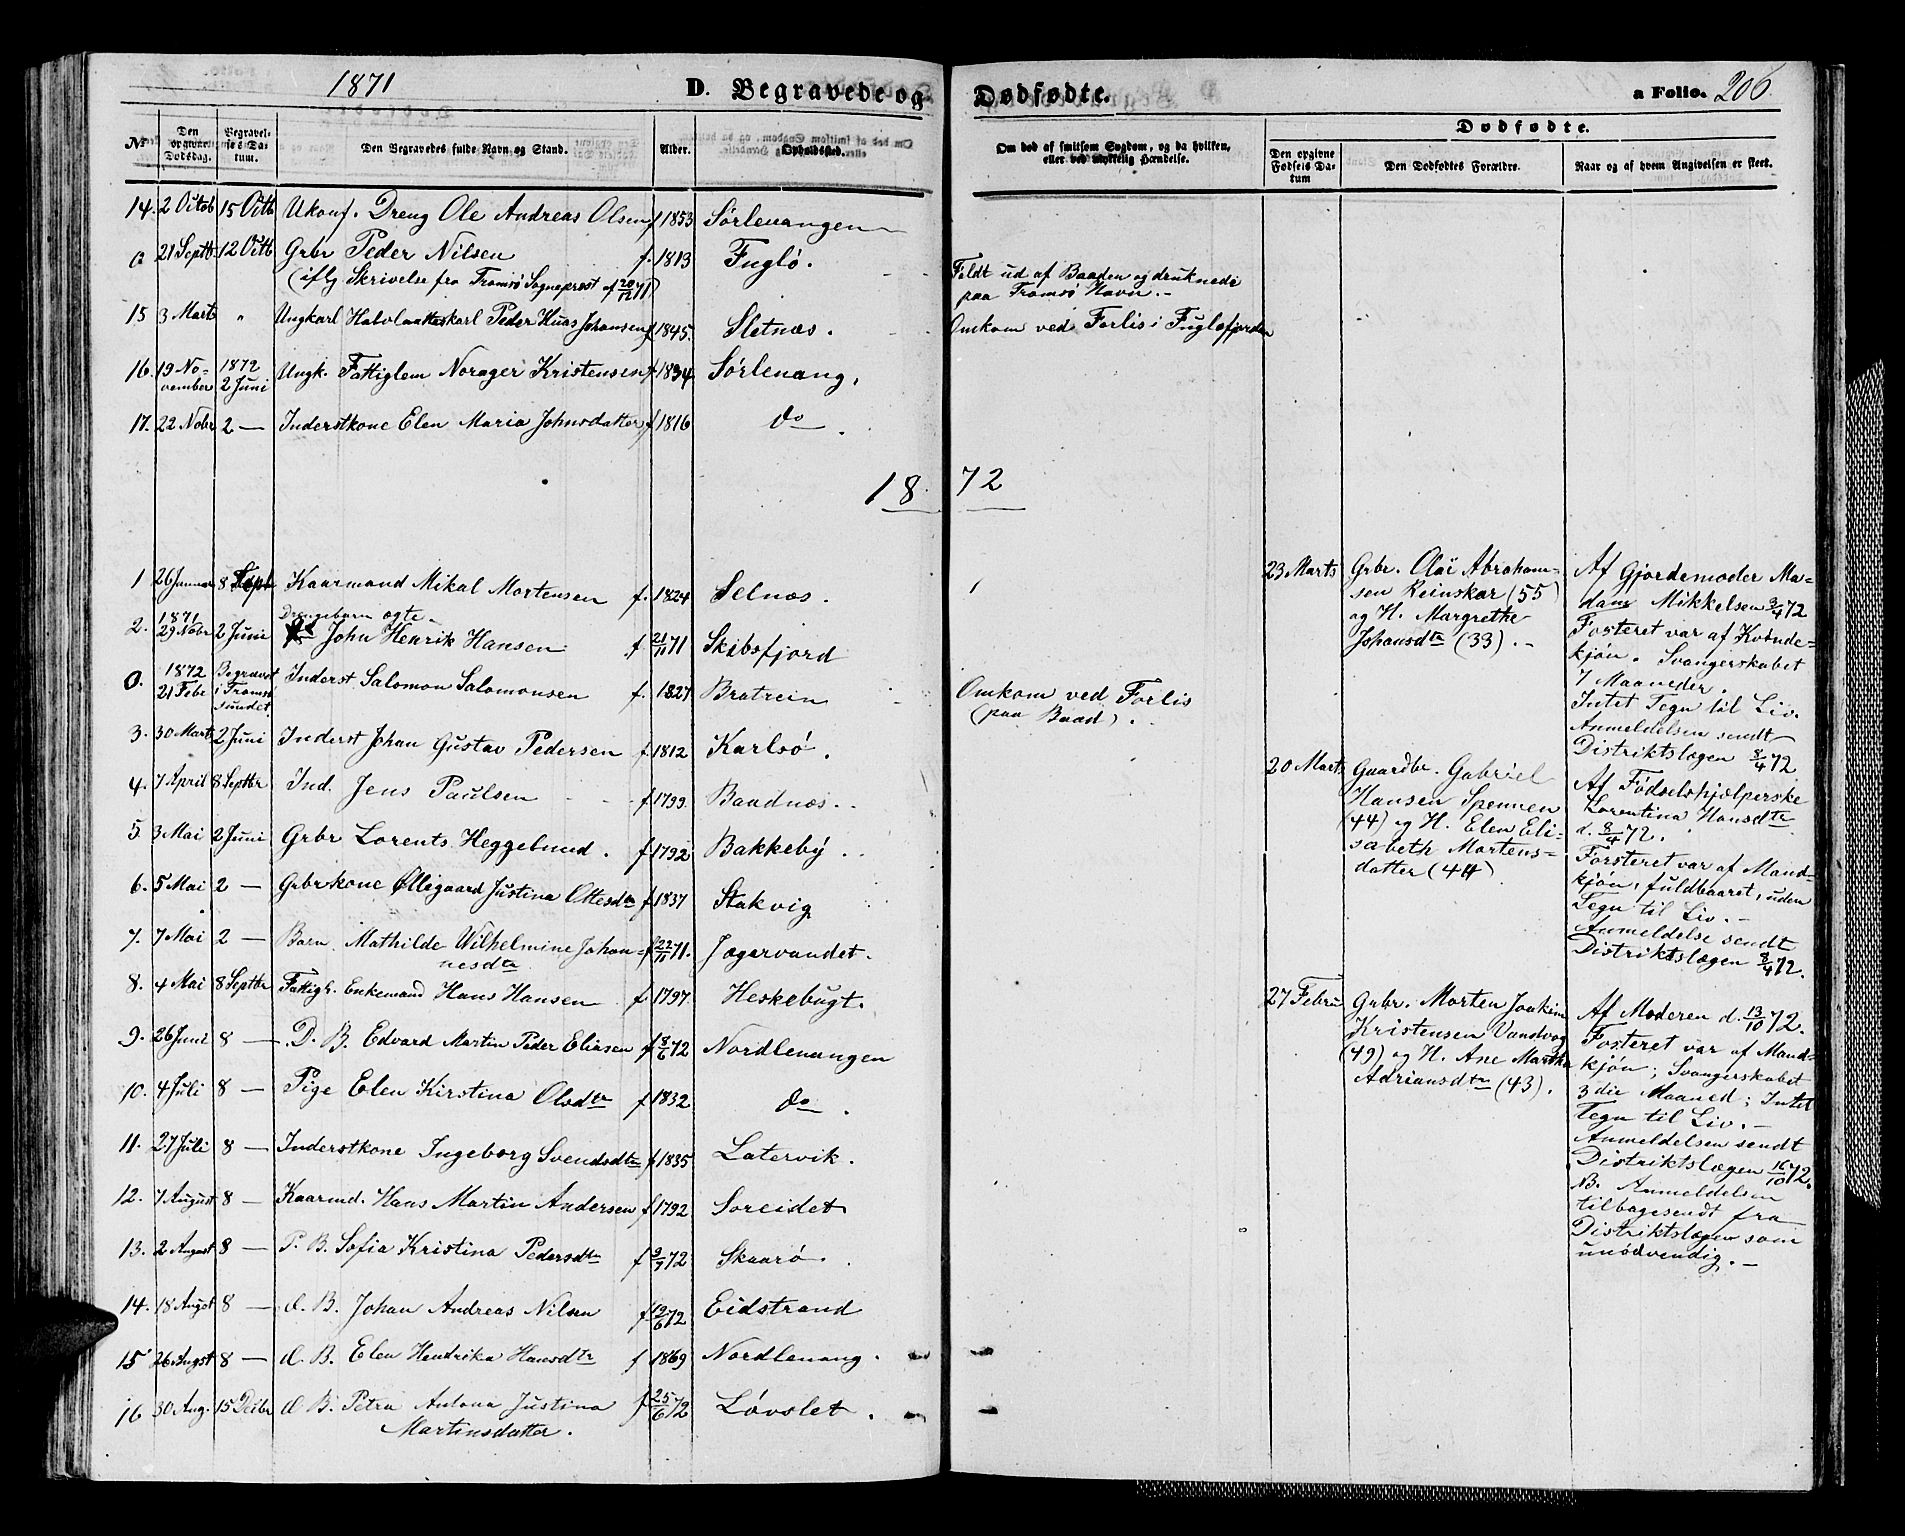 1871 D. Begravede og Dødfødte. a Folio. 206
Nr Den opgivne Dødsdag. Begravelses Datum. Den Begravedes fulde Navn og Stand. Alder. Opholdssted.
Om død af smitsom Sygdom, og da hvilken, eller ved ulykkelig Hændelse.
Dødfødte.
Den opgivne Fødsels Datum Den Dødfødtes Forældre. Naar og af hvem Angivelsen er skeet.
14. 2 Octob 15 Octb Ukonf. Dreng Ole Andreas Olsen f 1853 Sørlenangen
0 21 Septb. 12 Octb Grbr Peder Nilsen f. 1813 Fuglø.
(iflg Skrivelse fra Tromsø Sogneprest af 20/12 71)
Faldt ud af Baaden og druknede
paa Tromsø Havn. -
15 3 Marts " Ungkarl Peder Johansen f 1845. Sletnæs. Omkom ved Forlis i Fugløfjorden
16. 19 November 1872 2 Juni Ungk. Fattiglem Norager Kristensen f. 1834 Sørlenang.
17. 22 Nobr 2 — Inderstkone Elen Maria Johnsdatter f 1816 do
1872
1 26 Januar 8 Septb Kaarmand Mikal Mortensen f. 1824 Selnæs.
Drengebarn ægte
2. 1871 29 Nobr 2 Juni John Henrik Hansen f 21/11 71 Skibsfjord
0. 1872 21 Febr Begravet i Tromsøsundet. Inderst Salomon Salomonsen f. 1827 Bratrein Omkom ved Forlis
(paa Baad).
3. 30 Marts 2 Juni Inderst Johan Gustav Pedersen f. 1812 Karlsø.
4. 7 April 8 Septbr Ind. Jens Paulsen f 1799. Baadnæs.
5 3 Mai 2 Juni Grbr Lorents Heggelund. f. 1792 Bakkeby
6. 5 Mai 2 — Grbrkone Øllegaard Justina Ottesdtr f 1837 Stakvig
7. 7 Mai 2 — Barn Mathilde Wilhelmine Johan-
nesdtr f 22/11 71. Jægervandet.
8. 4 Mai 8 Septbr Fattigl. Enkemand Hans Hansen f 1797. Heskebugt.
9. 26 Juni 8 — D. B. Edvard Martin Peder Eliasen f 8/6 72 Nordlenangen
10. 4 Juli 8 — Pige Elen Kirstina Olsdtr f 1832 do
11. 27 Juli 8 — Inderstkone Ingeborg Svendsdtr f 1835 Latervik.
12. 7 August 8 — Kaarmd. Hans Martin Andersen f 1792 Soreidet
13. 2 August 8 — P. B. Sofia Kristina Pedersdtr f 9/7 72 Skaarø.
14. 18 Augst 8 — d. B. Johan Andreas Nilsen f 12/6 72 Eidstrand
15 26 Augst 8 — d. B. Elen Hendrika Hansdtr f 1869 Nordlenang.
16 30 Aug. 15 Decbr d B. Petra Antona Justina
Martinsdatter. f 25/6 72 Løvslet.
23 Marts Grbr. Olai Abraham-
sen Reinskar (55)
og H. Margrethe
Johansdtr (33). -
Af Gjordemoder Ma-
dam Mikkelsen 3/4 72
Fosteret var af Kvinde-
kjøn. Svangerskabet
7 Maaneder.
Intet Tegn til Liv.
Anmeldelsen sendt
Distriktslægen 8/4 72
20 Marts Gaardbr. Gabriel
Hansen Spennen
(44) og H. Elen Eli-
sabeth Mortens-
datter (44)
Af Fødselshjælperske
Lorentina Hansdtr
d. 8/4 72.
Forsteret var af Mand-
kjøn, fuldbaaret, uden
Tegn til Liv. -
Anmeldelse sendt
Distriktslægen 8/4 72.
27 Febru Grbr. Morten Joakim
Kristensen Vandvag
(49) og H. Ane Martha
Adriansdtr (43).
Af Moderen d. 13/10 72.
Fosteret var af Mand-
kjøn; Svangerskabet
3die Maaned; Intet
Tegn til Liv. -
Anmeldelsen sendt
Distriktslægen 16/10 72.
NB. Anmeldelsen
tilbagesendt fra
Distriktslægen som
unødvendig. -